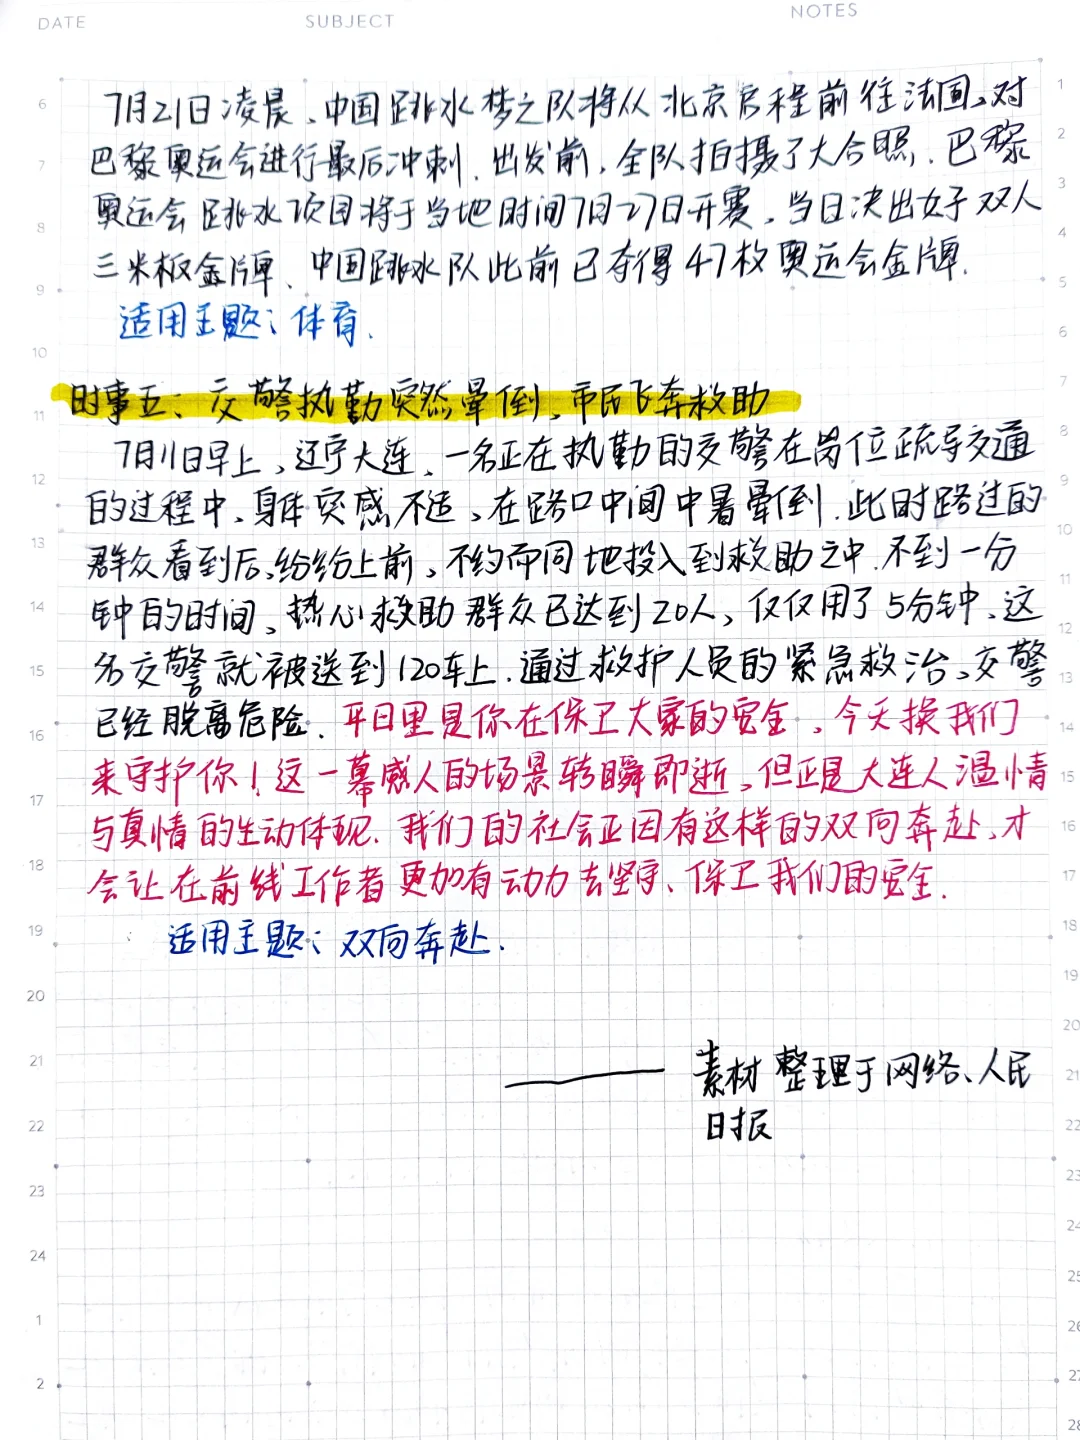 DATE SUBJECT NOTES
7月21日凌晨、中国跳水梦之队将从北京启程前往法国、对
巴黎奥运会进行最后冲刺.出发前,全队拍摄了大合照.巴黎
奥运会跳水项目将于当地时间7月27日开赛,当日决出女子双人
三米板金牌、中国跳水队此前已夺得47枚奥运会金牌.
适用主题:体育.
时事五:交警执勤突然晕倒、市民飞奔救助
7月11日早上,辽宁大连,一名正在执勤的交警在岗位疏导交通
的过程中,身体突感不适,在路口中间中暑晕倒.此时路过的
群众看到后,纷纷上前,不约而同地投入到救助之中.不到一分
钟的时间,热心救助群众已达到20人,仅仅用了5分钟、这
名交警就被送到120车上.通过救护人员的紧急救治、交警
已经脱离危险.平日里是你在保卫大家的安全,今天换我们
来守护你!这一幕感人的场景转瞬即逝,但正是大连人温情
与真情的生动体现.我们的社会正因有这样的双向奔赴,才
会让在前线工作者更加有动力去坚守、保卫我们的安全.
适用主题:双向奔赴.
——素材整理于网络、人民
日报